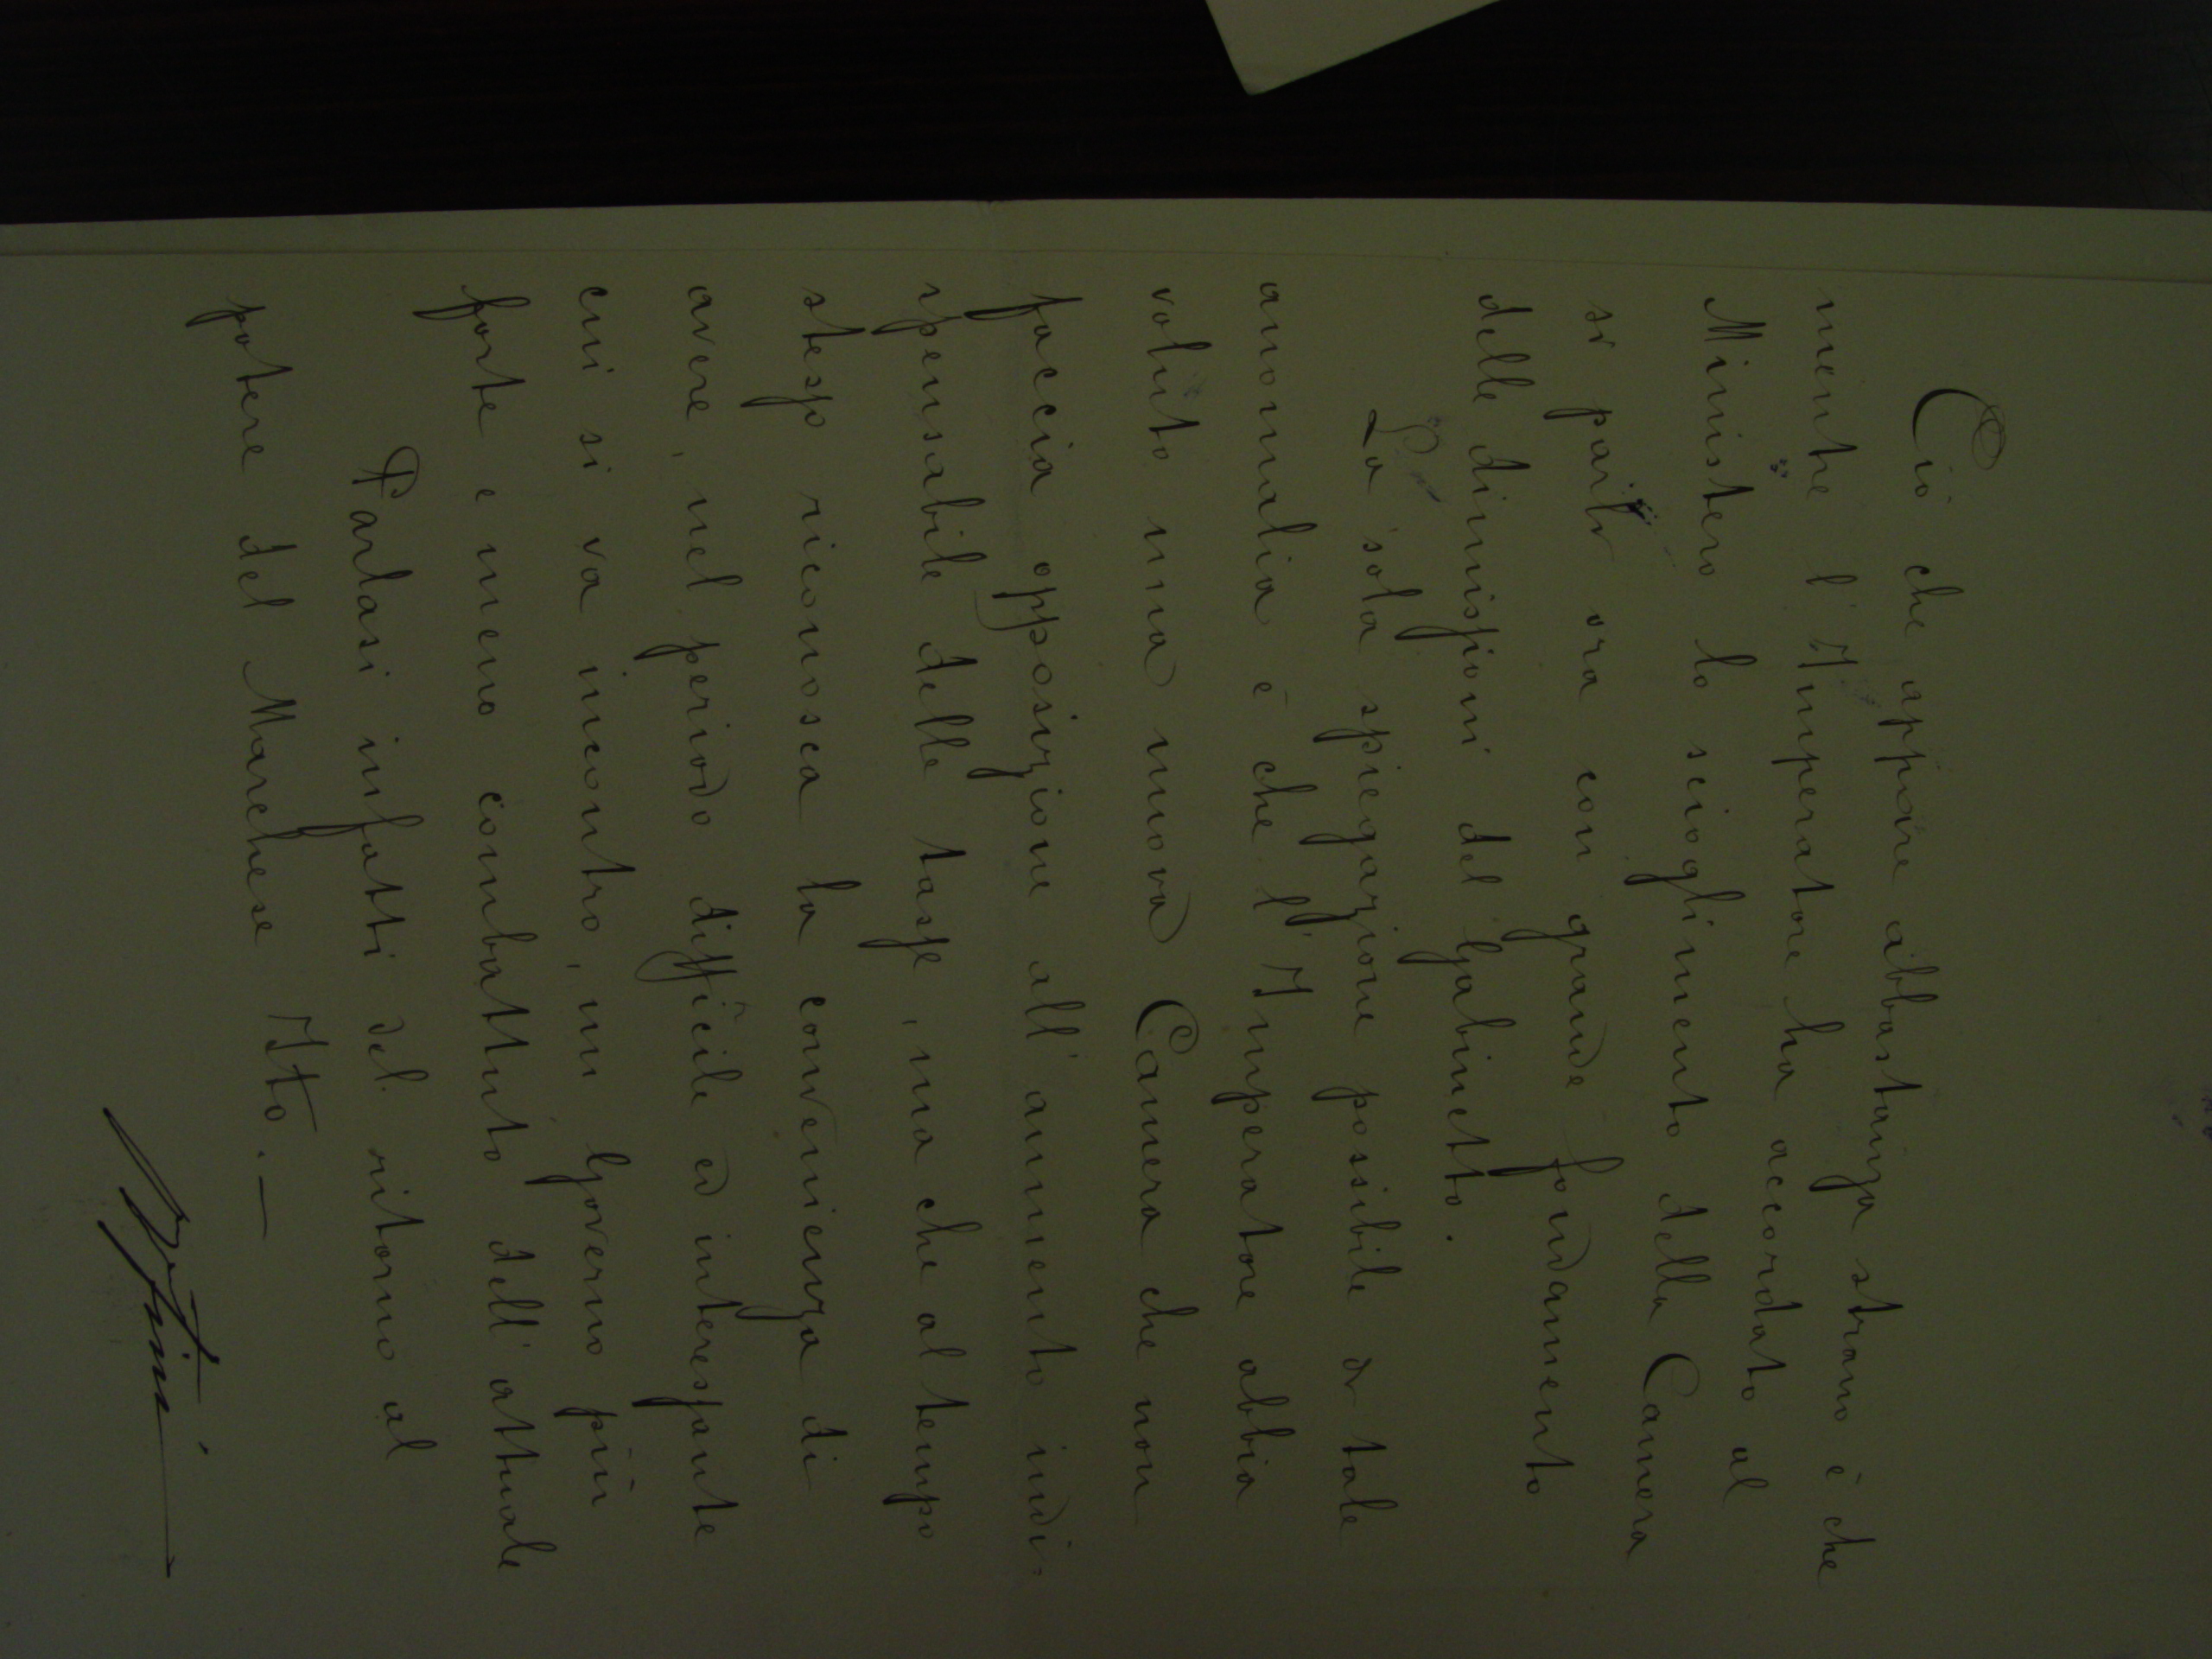 Ciò che appare abbastanza strano è che
mentre l'Imperatore ha accordato al
Ministero lo scioglimento della Camera
si parli ora con grande fondamento
delle dimissioni del Gabinetto.
La sola spiegazione possibile a tale
anomalia è che l'Imperatore abbia
voluto una nuova Camera che non
faccia opposizione all'aumento indi-
spensabile delle tasse, ma che al tempo
stesso riconosca la convenienza di
avere, nel periodo difficile ed interessante
cui si va incontro, un Governo più
forte e meno combattuto dell'attuale
Parlasi infatti del ritorno al
potere del Marchese Ito. —